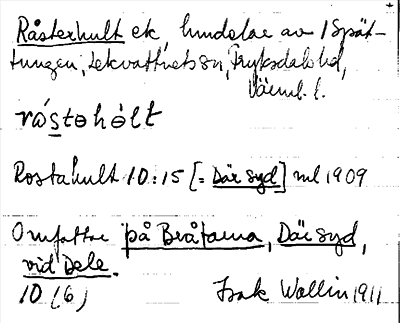 Råsterhult ek, hindelar av 1 Spät-
tungen, Lekvattnets sn, Fryksdals hd,
Värml. l.
råstəhəlt
Rostahult 10:15 [= Där syd] ml 1909
Omfattar på Bråtarna, Där syd,
vid Dele.
10 (6) Isak Wallin 1911